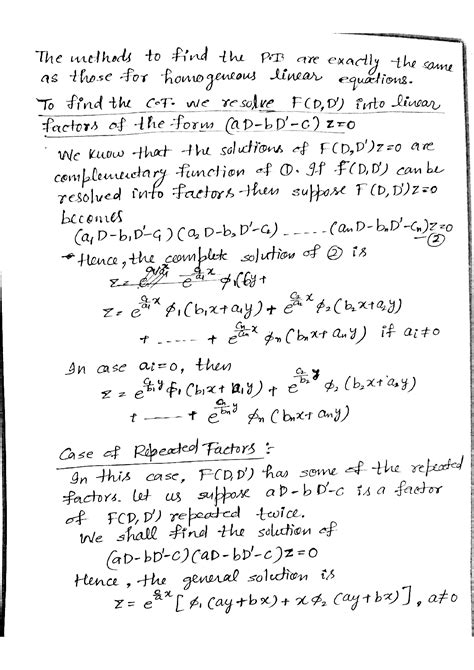 The methods to find the P.I. are exactly the same
as those for homogeneous linear equations.
To find the C.F. we resolve F(D,D') into linear
factors of the form (aD-bD'-c) z=0
We know that the solutions of F(D,D')z=0 are
complementary function of ①. If F(D,D') can be
resolved into factors then suppose F(D,D')z=0
becomes
(a₁D-b₁D'-c₁)(a₂D-b₂D'-c₂)......(aₙD-bₙD'-cₙ)z=0
②
Hence, the complete solution of ② is
z = e^{c₁/a₁ x} ϕ₁(b₁x+a₁y) + e^{c₂/a₂ x} ϕ₂(b₂x+a₂y)
+ ...... + e^{cₙ/aₙ x} ϕₙ(bₙx+aₙy) if aᵢ≠0
In case aᵢ=0, then
z = e^{c₁/b₁ y} ϕ₁(b₁x+a₁y) + e^{c₂/b₂ y} ϕ₂(b₂x+a₂y)
+ ...... + e^{cₙ/bₙ y} ϕₙ(bₙx+aₙy)
Case of Repeated Factors :-
In this case, F(D,D') has some of the repeated
factors. Let us suppose aD-bD'-c is a factor
of F(D,D') repeated twice.
We shall find the solution of
(aD-bD'-c)(aD-bD'-c)z=0
Hence, the general solution is
z = e^{c/a x} [ϕ₁(ay+bx)+xϕ₂(ay+bx)], a≠0